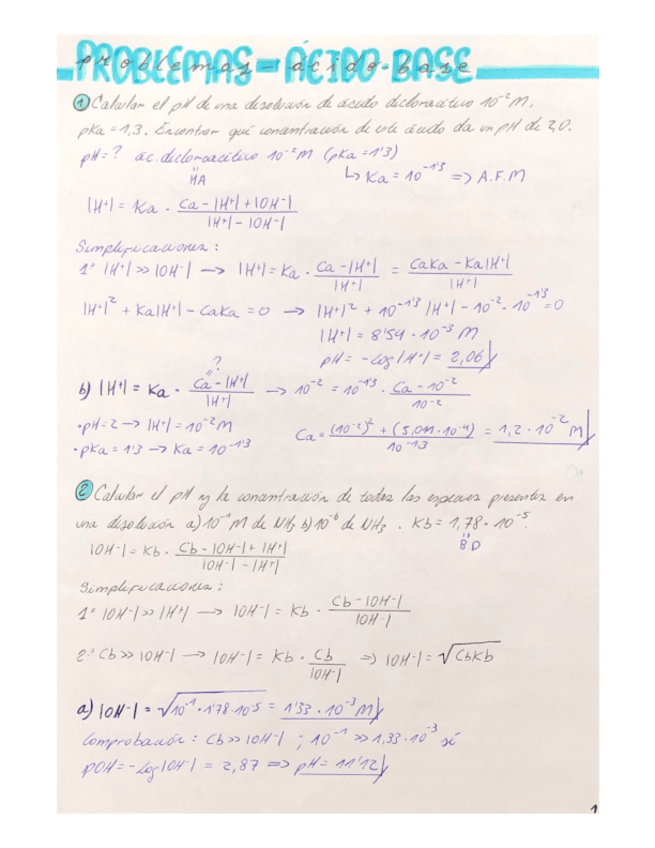 PROBLEMAS - ÁCIDO-BASE
problemas - ácido-base
① Calcular el pH de una disolución de ácido dicloroacético 10⁻² M.
pKa = 1,3. Encontrar qué concentración de este ácido da un pH de 2,0.
pH = ? ác. dicloroacético 10⁻² M (pKa = 1'3)
HA ↳ Ka = 10⁻¹'³ => A.F.M
|H⁺| = Ka · (Ca - |H⁺| + |OH⁻|) / (|H⁺| - |OH⁻|)
Simplificaciones:
1ª |H⁺| >> |OH⁻| → |H⁺| = Ka · (Ca - |H⁺|) / |H⁺| = (CaKa - Ka|H⁺|) / |H⁺|
|H⁺|² + Ka|H⁺| - CaKa = 0 → |H⁺|² + 10⁻¹'³ |H⁺| - 10⁻² · 10⁻¹'³ = 0
|H⁺| = 8'54 · 10⁻³ M
pH = -log|H⁺| = 2,06
?
b) |H⁺| = Ka · (Ca - |H⁺|) / |H⁺| → 10⁻² = 10⁻¹'³ · (Ca - 10⁻²) / 10⁻²
· pH = 2 → |H⁺| = 10⁻² M
· pKa = 1'3 → Ka = 10⁻¹'³
Ca = ((10⁻²)² + (5,011 · 10⁻⁴)) / 10⁻¹'³ = 1,2 · 10⁻² M
② Calcular el pH y la concentración de todas las especies presentes en
una disolución a) 10⁻¹ M de NH₃ b) 10⁻⁶ de NH₃. Kb = 1,78 · 10⁻⁵.
|OH⁻| = Kb · (Cb - |OH⁻| + |H⁺|) / (|OH⁻| - |H⁺|)
Simplificaciones:
1ª |OH⁻| >> |H⁺| → |OH⁻| = Kb · (Cb - |OH⁻|) / |OH⁻|
2ª Cb >> |OH⁻| → |OH⁻| = Kb · Cb / |OH⁻| => |OH⁻| = √CbKb
a) |OH⁻| = √10⁻¹ · 1'78 · 10⁻⁵ = 1'33 · 10⁻³ M
Comprobación: Cb >> |OH⁻| ; 10⁻¹ >> 1,33 · 10⁻³ sí
pOH = -log|OH⁻| = 2,87 => pH = 11'12
1